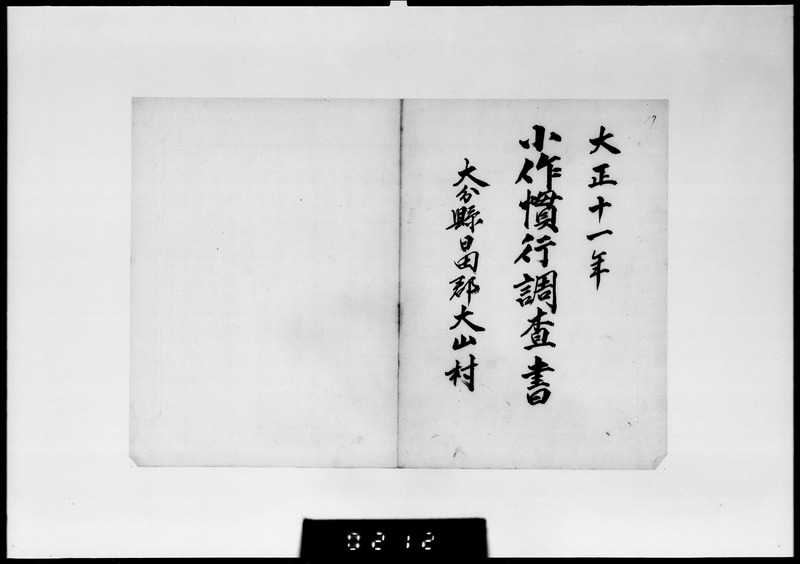 大正十一年
小作慣行調査書
大分縣日田郡大山村
0212